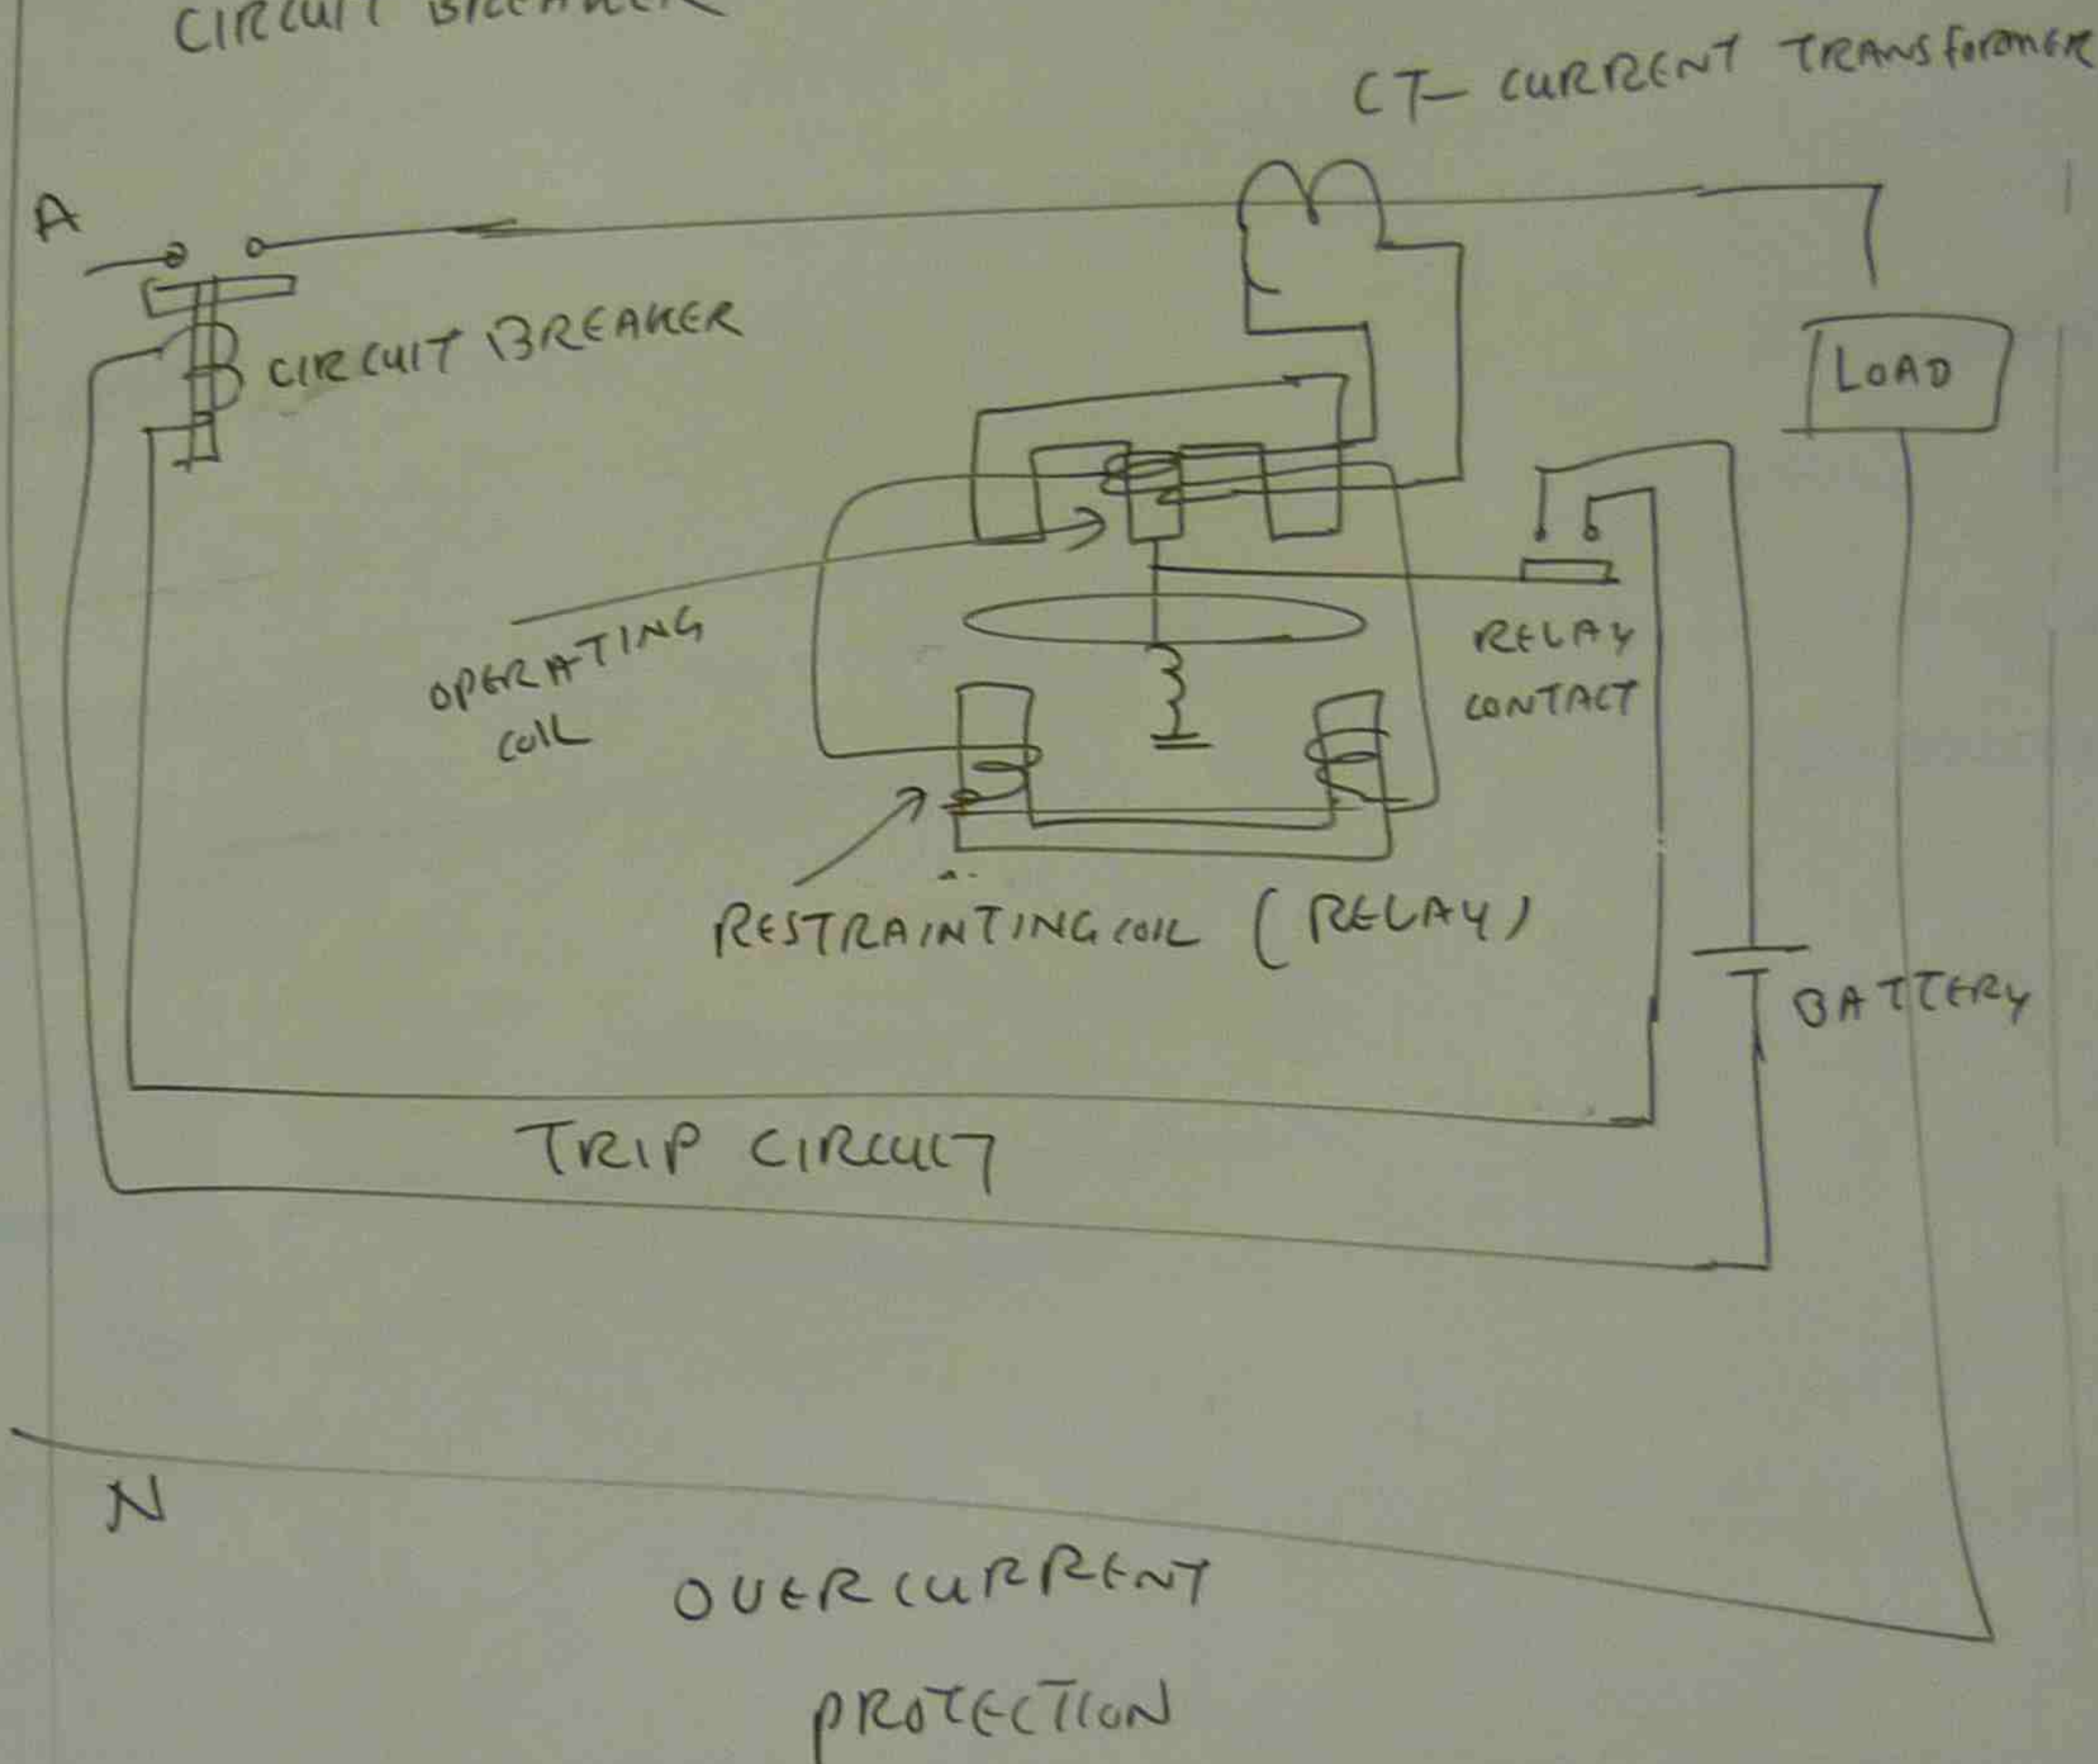 CIRCUIT BREAKER
CT- CURRENT TRANSformER
A
CIRCUIT BREAKER
LOAD
OPERATING
COIL
RELAY
CONTACT
RESTRAINTING COIL (RELAY)
BATTERY
TRIP CIRCUIT
N
OVERCURRENT
PROTECTION